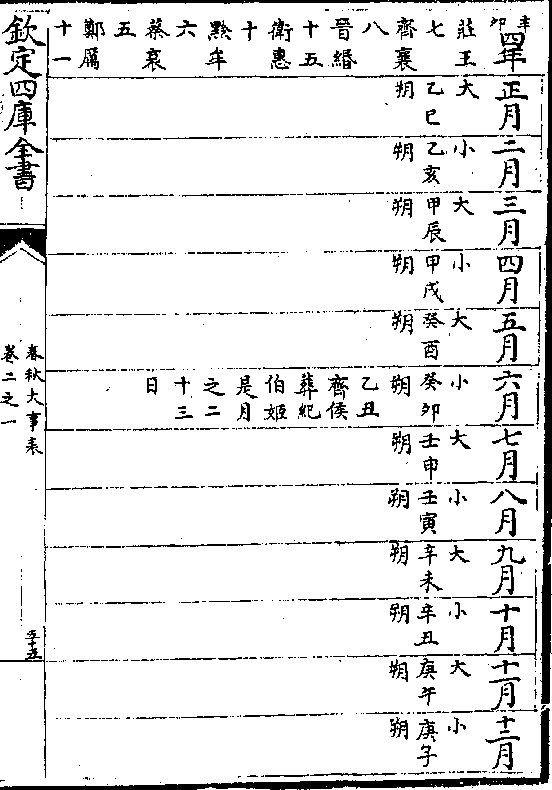 辛卯
四年
莊王
七
齊襄
八
晉緡
十五
衛惠
十
黔牟
六
蔡哀
五
鄭厲
十一
正月
大
乙巳
朔
二月
小
乙亥
朔
三月
大
甲辰
朔
四月
小
甲戌
朔
五月
大
癸酉
朔
六月
小
癸卯
朔
乙丑
齊侯
葬紀
伯姬
是月
之二
十三
日
七月
大
壬申
朔
八月
小
壬寅
朔
九月
大
辛未
朔
十月
小
辛丑
朔
十一月
大
庚午
朔
十二月
小
庚子
朔
欽定四庫全書
春秋大事表
卷二之一
五十五